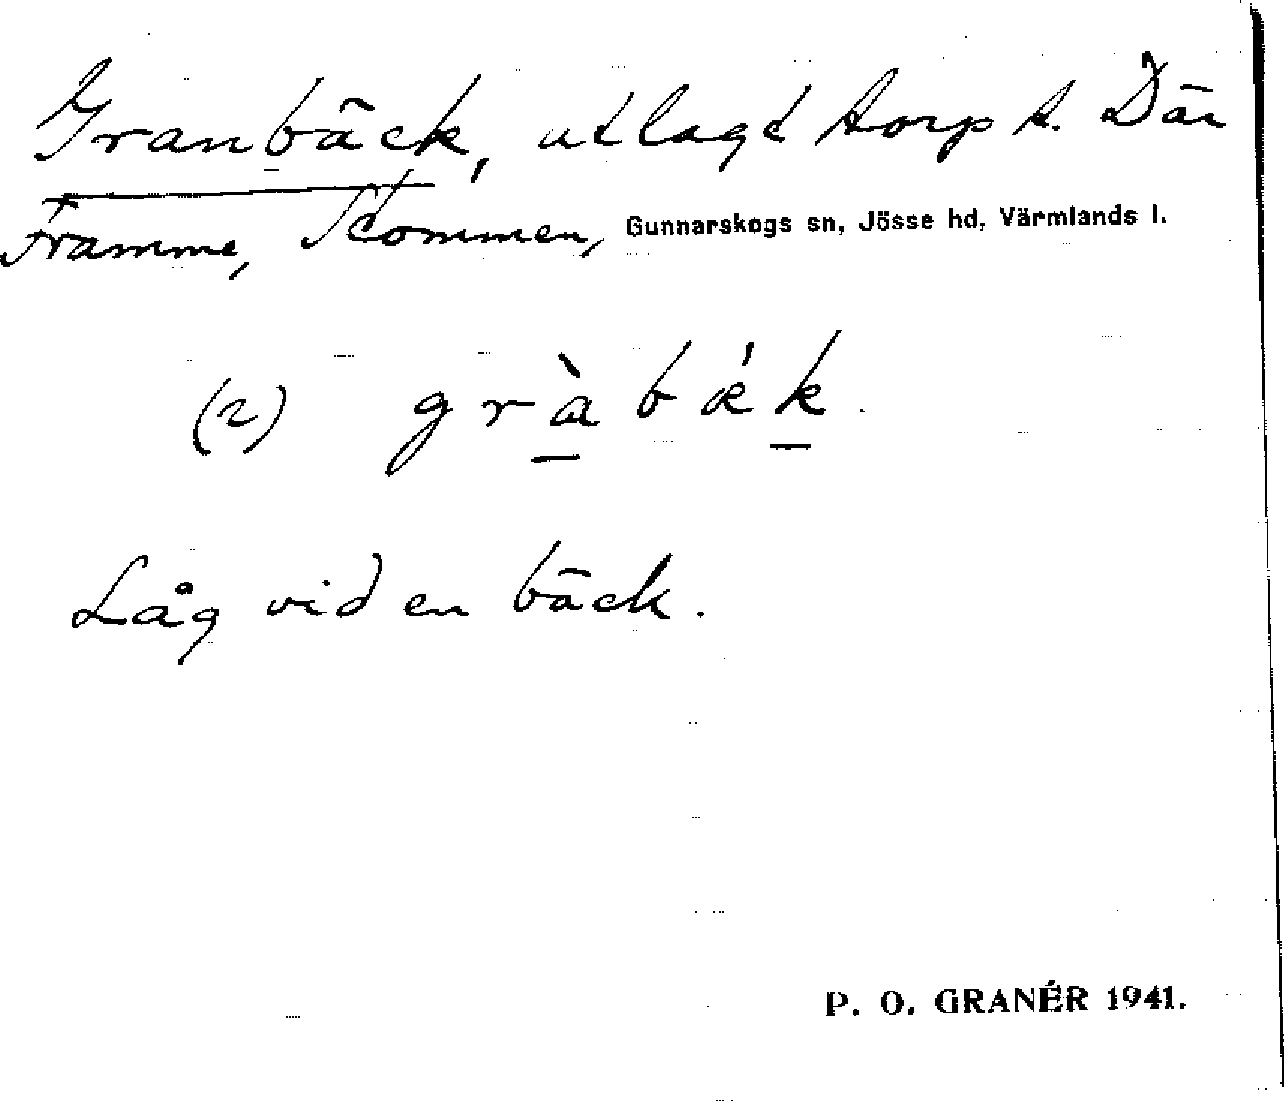 Granbäck, utlagt torp t. Där
Framme, Stommen, Gunnarskogs sn, Jösse hd, Värmlands l.
(2) gràbǽk.
Låg vid en bäck.
P. O. GRANÉR 1941.